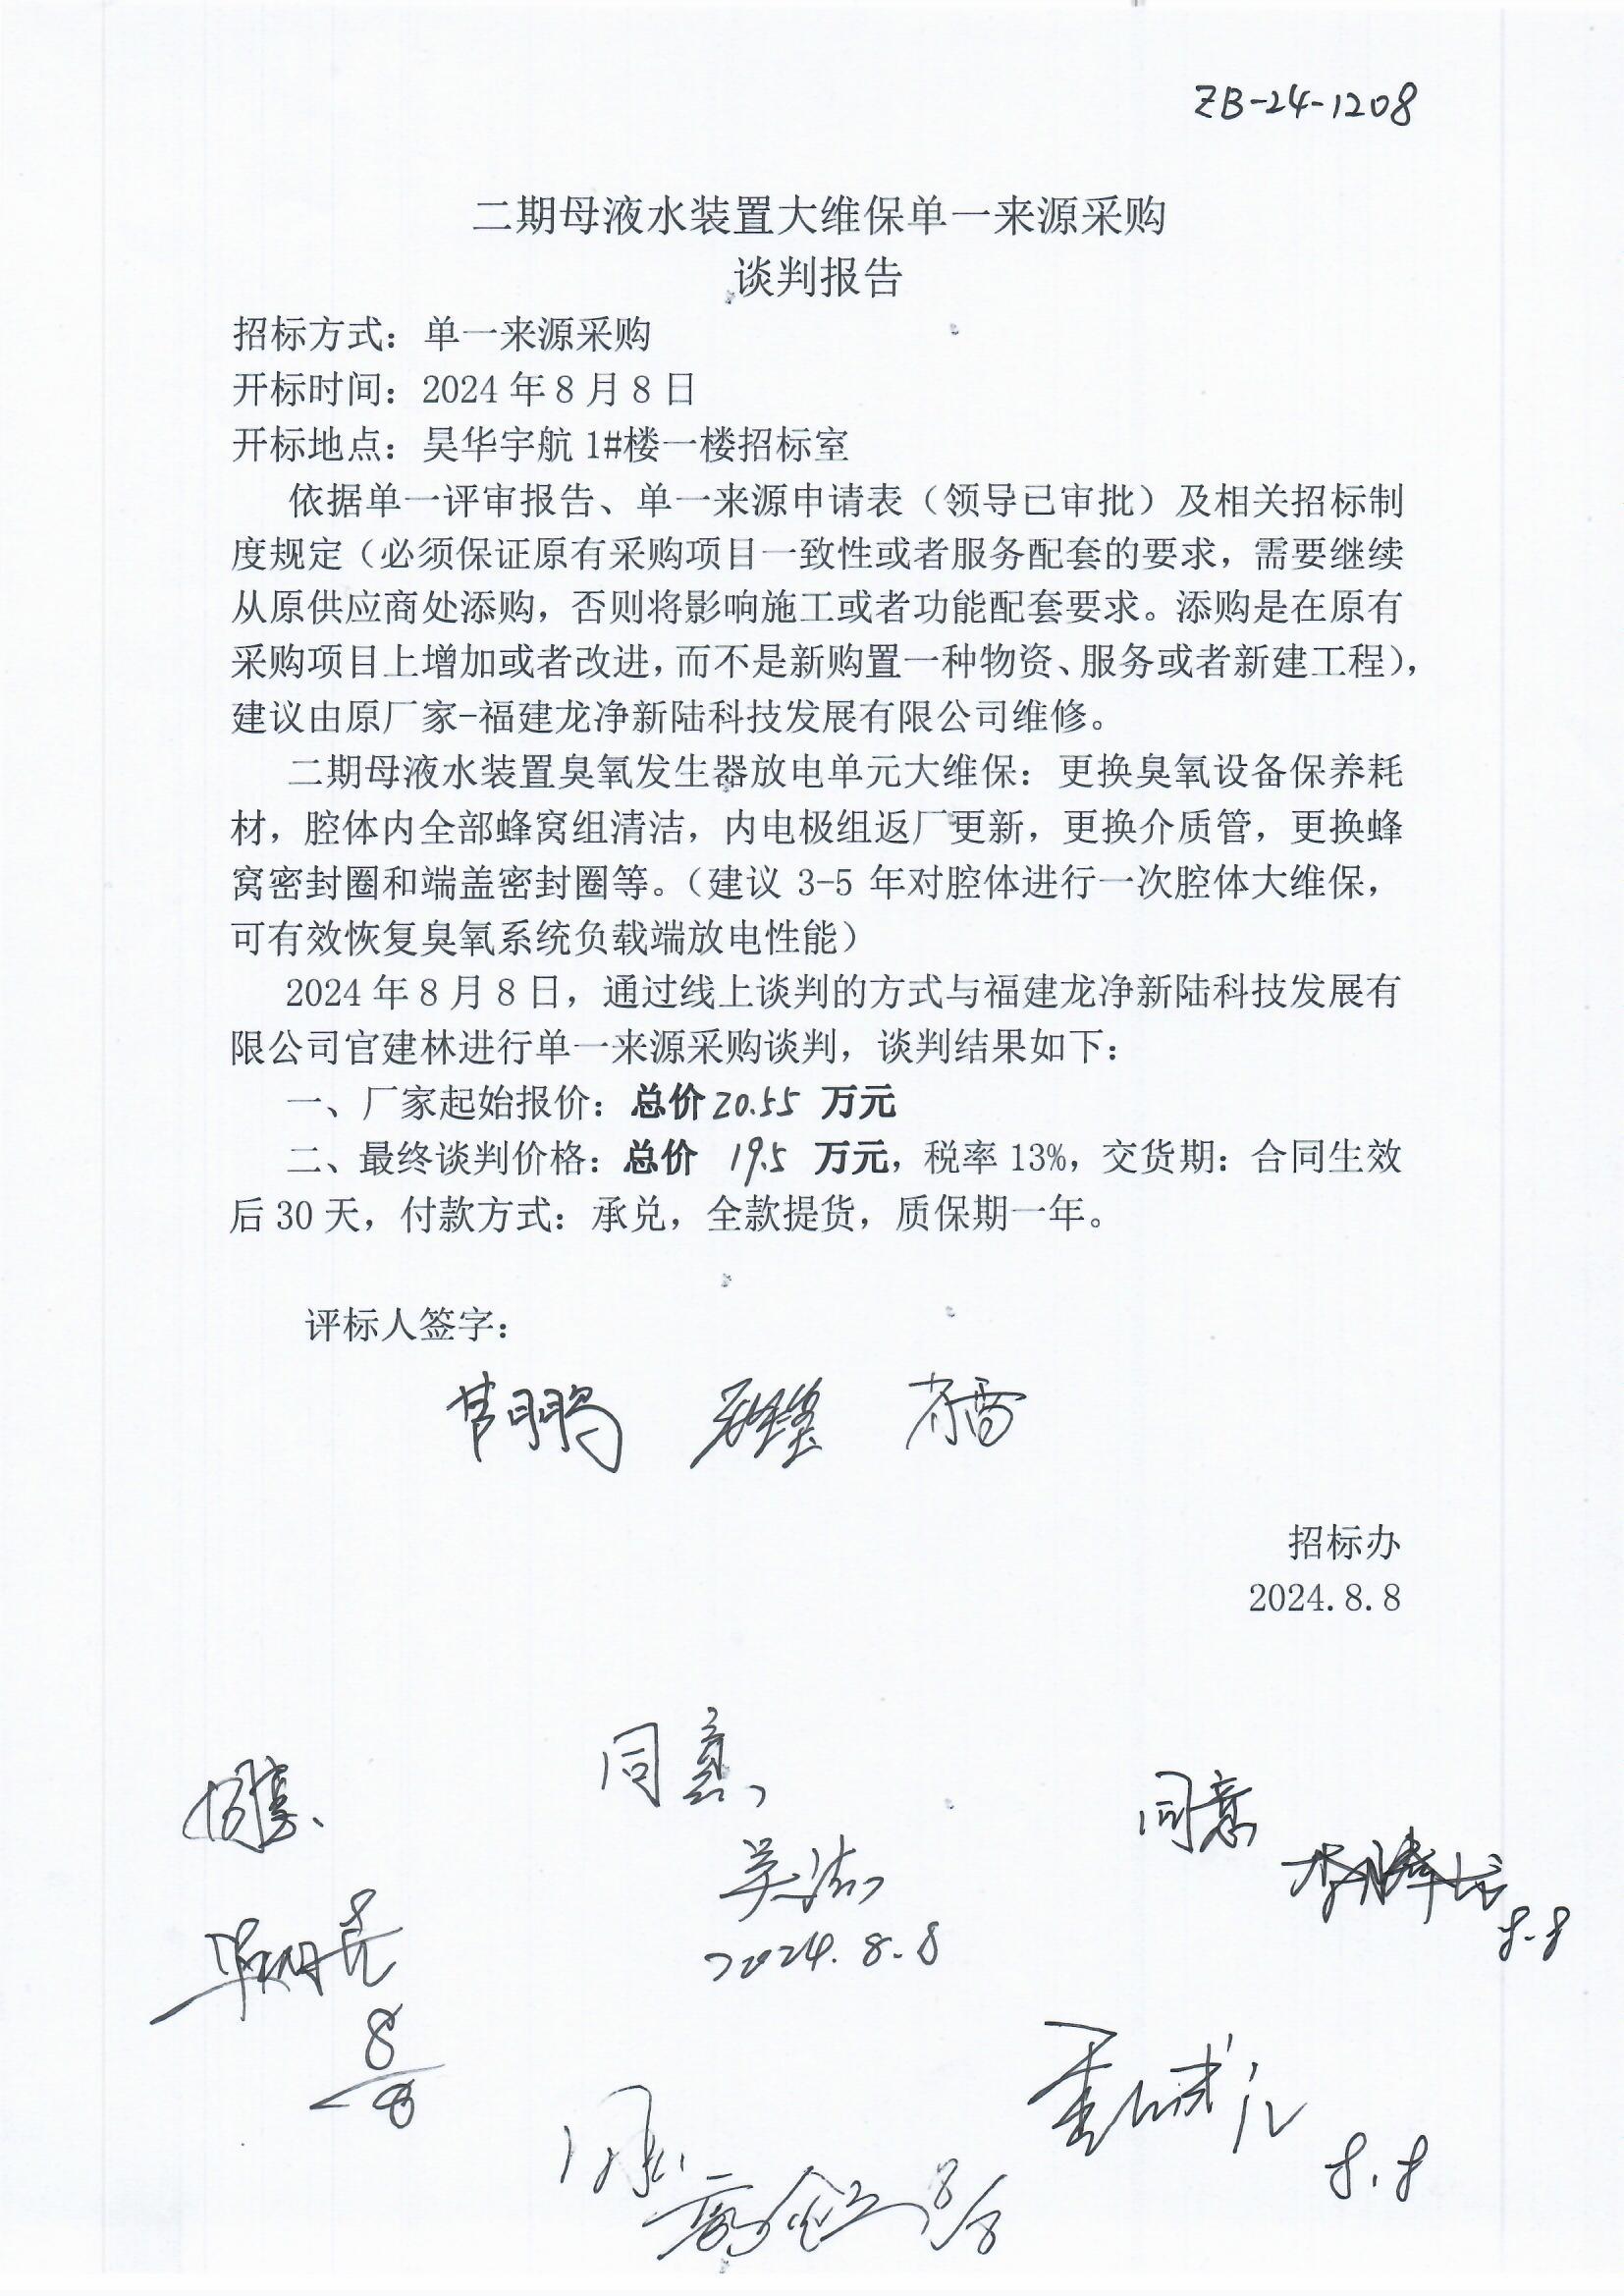 ZB-24-1208
二期母液水装置大维保单一来源采购
谈判报告
招标方式：单一来源采购
开标时间：2024年8月8日
开标地点：昊华宇航1#楼一楼招标室
依据单一评审报告、单一来源申请表（领导已审批）及相关招标制
度规定（必须保证原有采购项目一致性或者服务配套的要求，需要继续
从原供应商处添购，否则将影响施工或者功能配套要求。添购是在原有
采购项目上增加或者改进，而不是新购置一种物资、服务或者新建工程），
建议由原厂家-福建龙净新陆科技发展有限公司维修。
二期母液水装置臭氧发生器放电单元大维保：更换臭氧设备保养耗
材，腔体内全部蜂窝组清洁，内电极组返厂更新，更换介质管，更换蜂
窝密封圈和端盖密封圈等。（建议 3-5 年对腔体进行一次腔体大维保，
可有效恢复臭氧系统负载端放电性能）
2024年8月8日，通过线上谈判的方式与福建龙净新陆科技发展有
限公司官建林进行单一来源采购谈判，谈判结果如下：
一、厂家起始报价：总价20.55 万元
二、最终谈判价格：总价 19.5 万元，税率13%，交货期：合同生效
后30天，付款方式：承兑，全款提货，质保期一年。
评标人签字：
招标办
2024.8.8
同意
同意
同意
2024.8.8
8.8
8/8
8.8
8/8